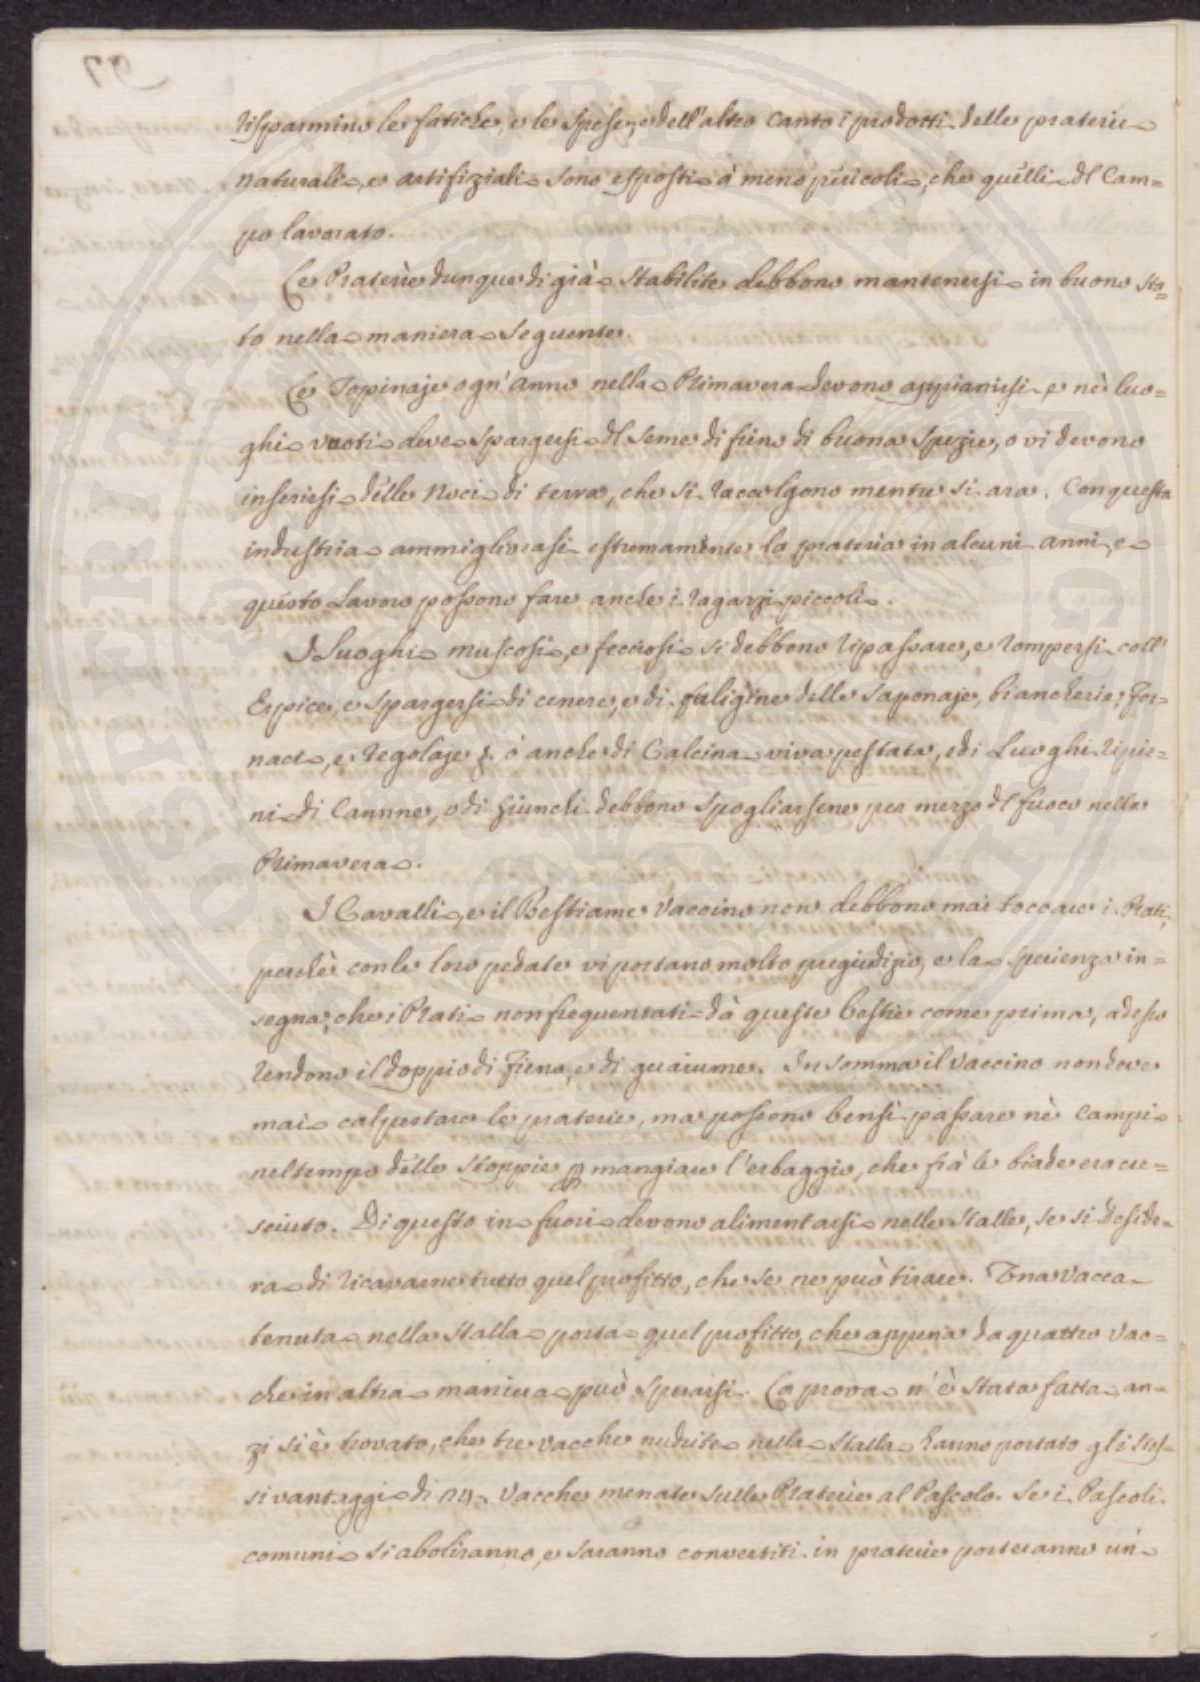 risparmino le fatiche, e le spese, e dell'altro canto i prodotti delle praterie
naturali, e artifiziali sono esposti à meno pericoli, che quelli dl Cam=
po lavorato.
Le Praterie dunque di già stabilite debbono mantenersi in buono sta=
to nella maniera seguente.
Le Topinaje ogn'anno nella Primavera devono appianirsi e nè luo=
ghi vuoti deve spargersi dl seme di fieno di buona spezie, o vi devono
inserirsi delle Noci di terra, che si raccolgono mentre si ara. Con questa
industria ammigliorasi estremamente la prateria in alcuni anni, e
questo Lavoro possono fare anche i ragazzi piccoli.
I Luoghi muscosi, e fecciosi si debbono ripassare, e rompersi coll'
Erpice, e spargersi di cenere, e di fuligine delle saponaje, biancherie, For=
naci, e regolaje &. ò anche di Calcina viva pestata, edi Luoghi ripie=
ni di Cannne, o di giunchi debbono spogliarsene per mezzo dl fuoco nella
Primavera.
I Cavalli, e il Bestiame Vaccino non debbono mai toccare i Prati,
perchè con le loro pedate vi portano molto pregiudizio, e la sperienza in=
segna, che i Prati non frequentati dà queste bestie come prima, adesso
rendono il doppio di Fieno, e di guaiume. In somma il Vaccino non deve
mai calpestare le praterie, ma possono bensì passare nè campi
nel tempo delle stoppie p mangiare l'erbaggio, che frà le biade era cre=
sciuto. Di questo in fuori devono alimentarsi nelle stalle, se si deside=
ra di ricavarne tutto quel profitto, che se ne può tirare. Una Vacca
tenuta nella stalla porta quel profitto, che appena da quattro Vac=
che in altra maniera può sperarsi. La prova n'è stata fatta, an=
zi si è trovato, che tre vacche nudrite nella stalla hanno portato gli stes=
si vantaggi di Vacche menate sulle Praterie al Pascolo. Se i Pascoli
comuni si aboliranno, e saranno convertiti in praterie porteranno un